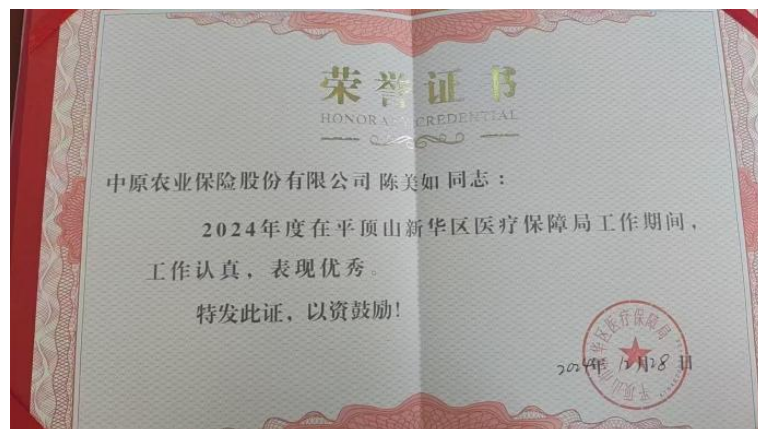 荣誉证书
HONORARY CREDENTIAL
中原农业保险股份有限公司 陈美如 同志：
2024年度在平顶山新华区医疗保障局工作期间，
工作认真，表现优秀。
特发此证，以资鼓励！
2024年 12月28日